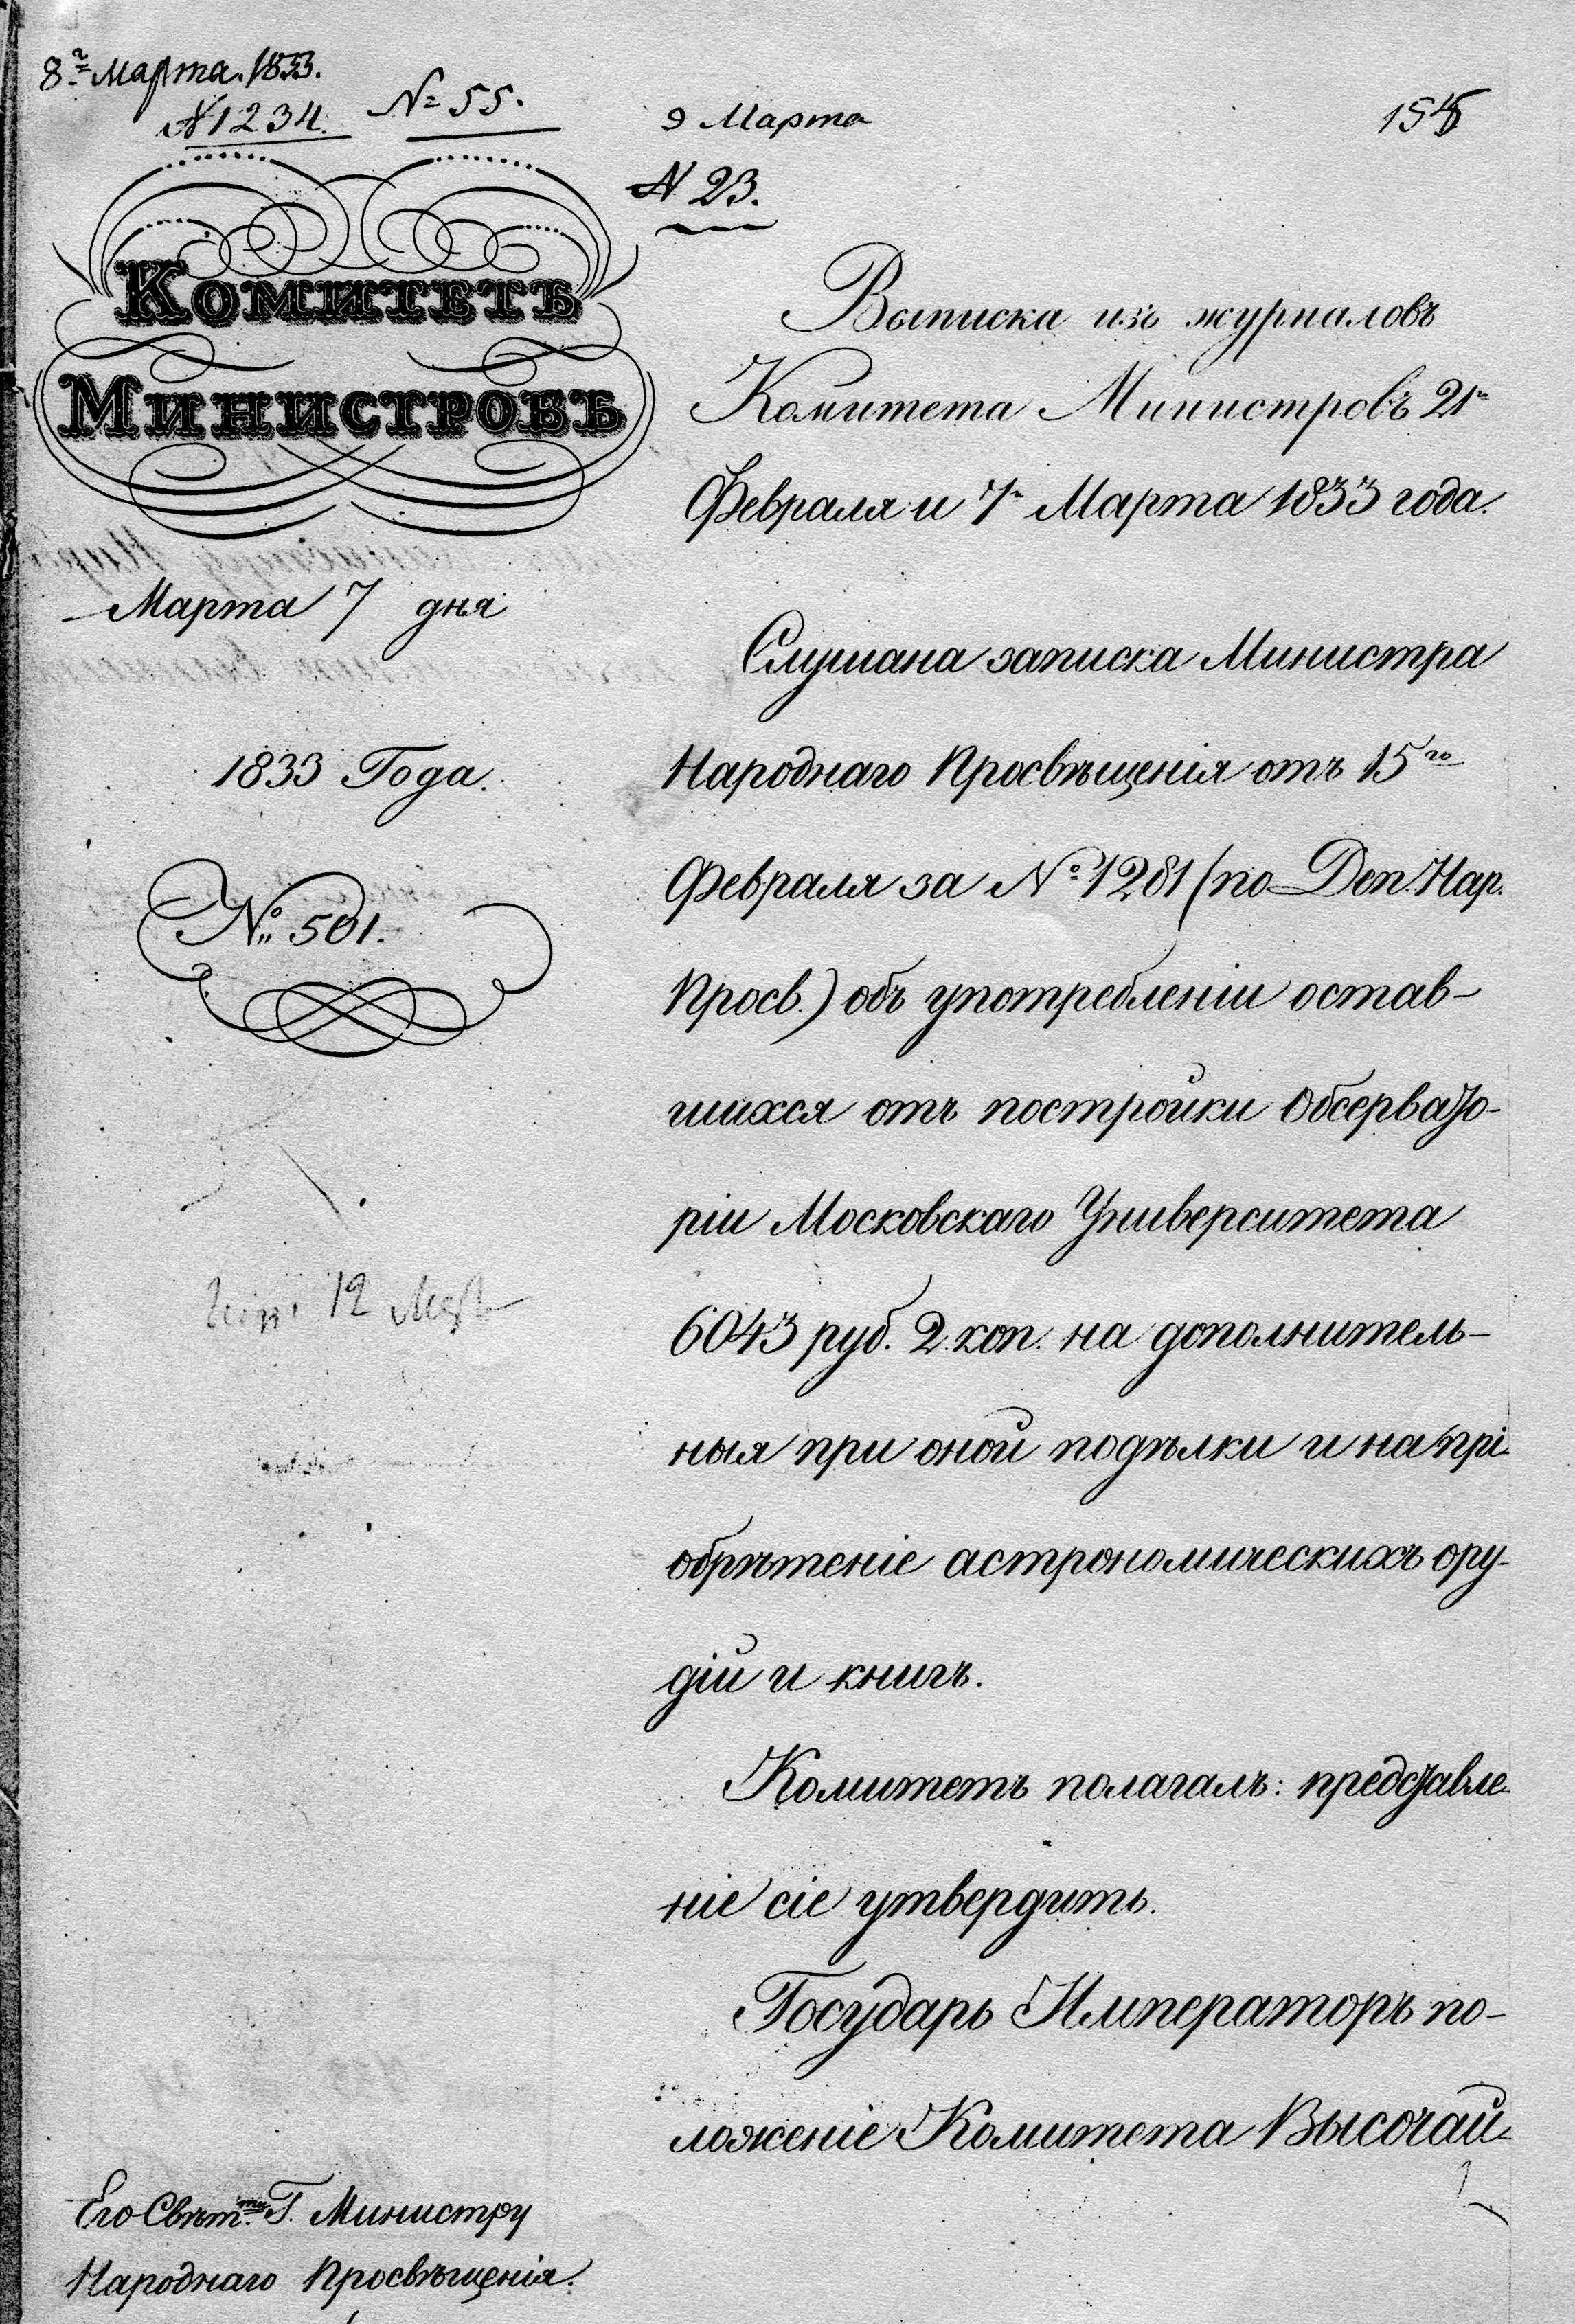 8г Марта. 1833.
N 1234. № 55.
9 Марта
N 23.
Комитетъ
Министровъ
Марта 7 дня
1833 Года.
№ 501.
12
Выписка изъ журналовъ
Комитета Министровъ 21го
Февраля и 7го Марта 1833 года.
Слушана записка Министра
Народнаго Просвѣщенія отъ 15го
Февраля за № 1281 (по Деп. Нар.
Просв.) объ употребленіи остав-
шихся отъ постройки Обсервато-
ріи Московскаго Университета
6043 руб. 2 коп. на дополнитель-
ныя при оной подѣлки и на прі-
обрѣтеніе астрономическихъ ору-
дій и книгъ.
Комитетъ полагалъ: представле-
ніе сіе утвердить.
Государь Императоръ по-
ложеніе Комитета Высочай-
Его Свѣт.ти Г. Министру
Народнаго Просвѣщенія.